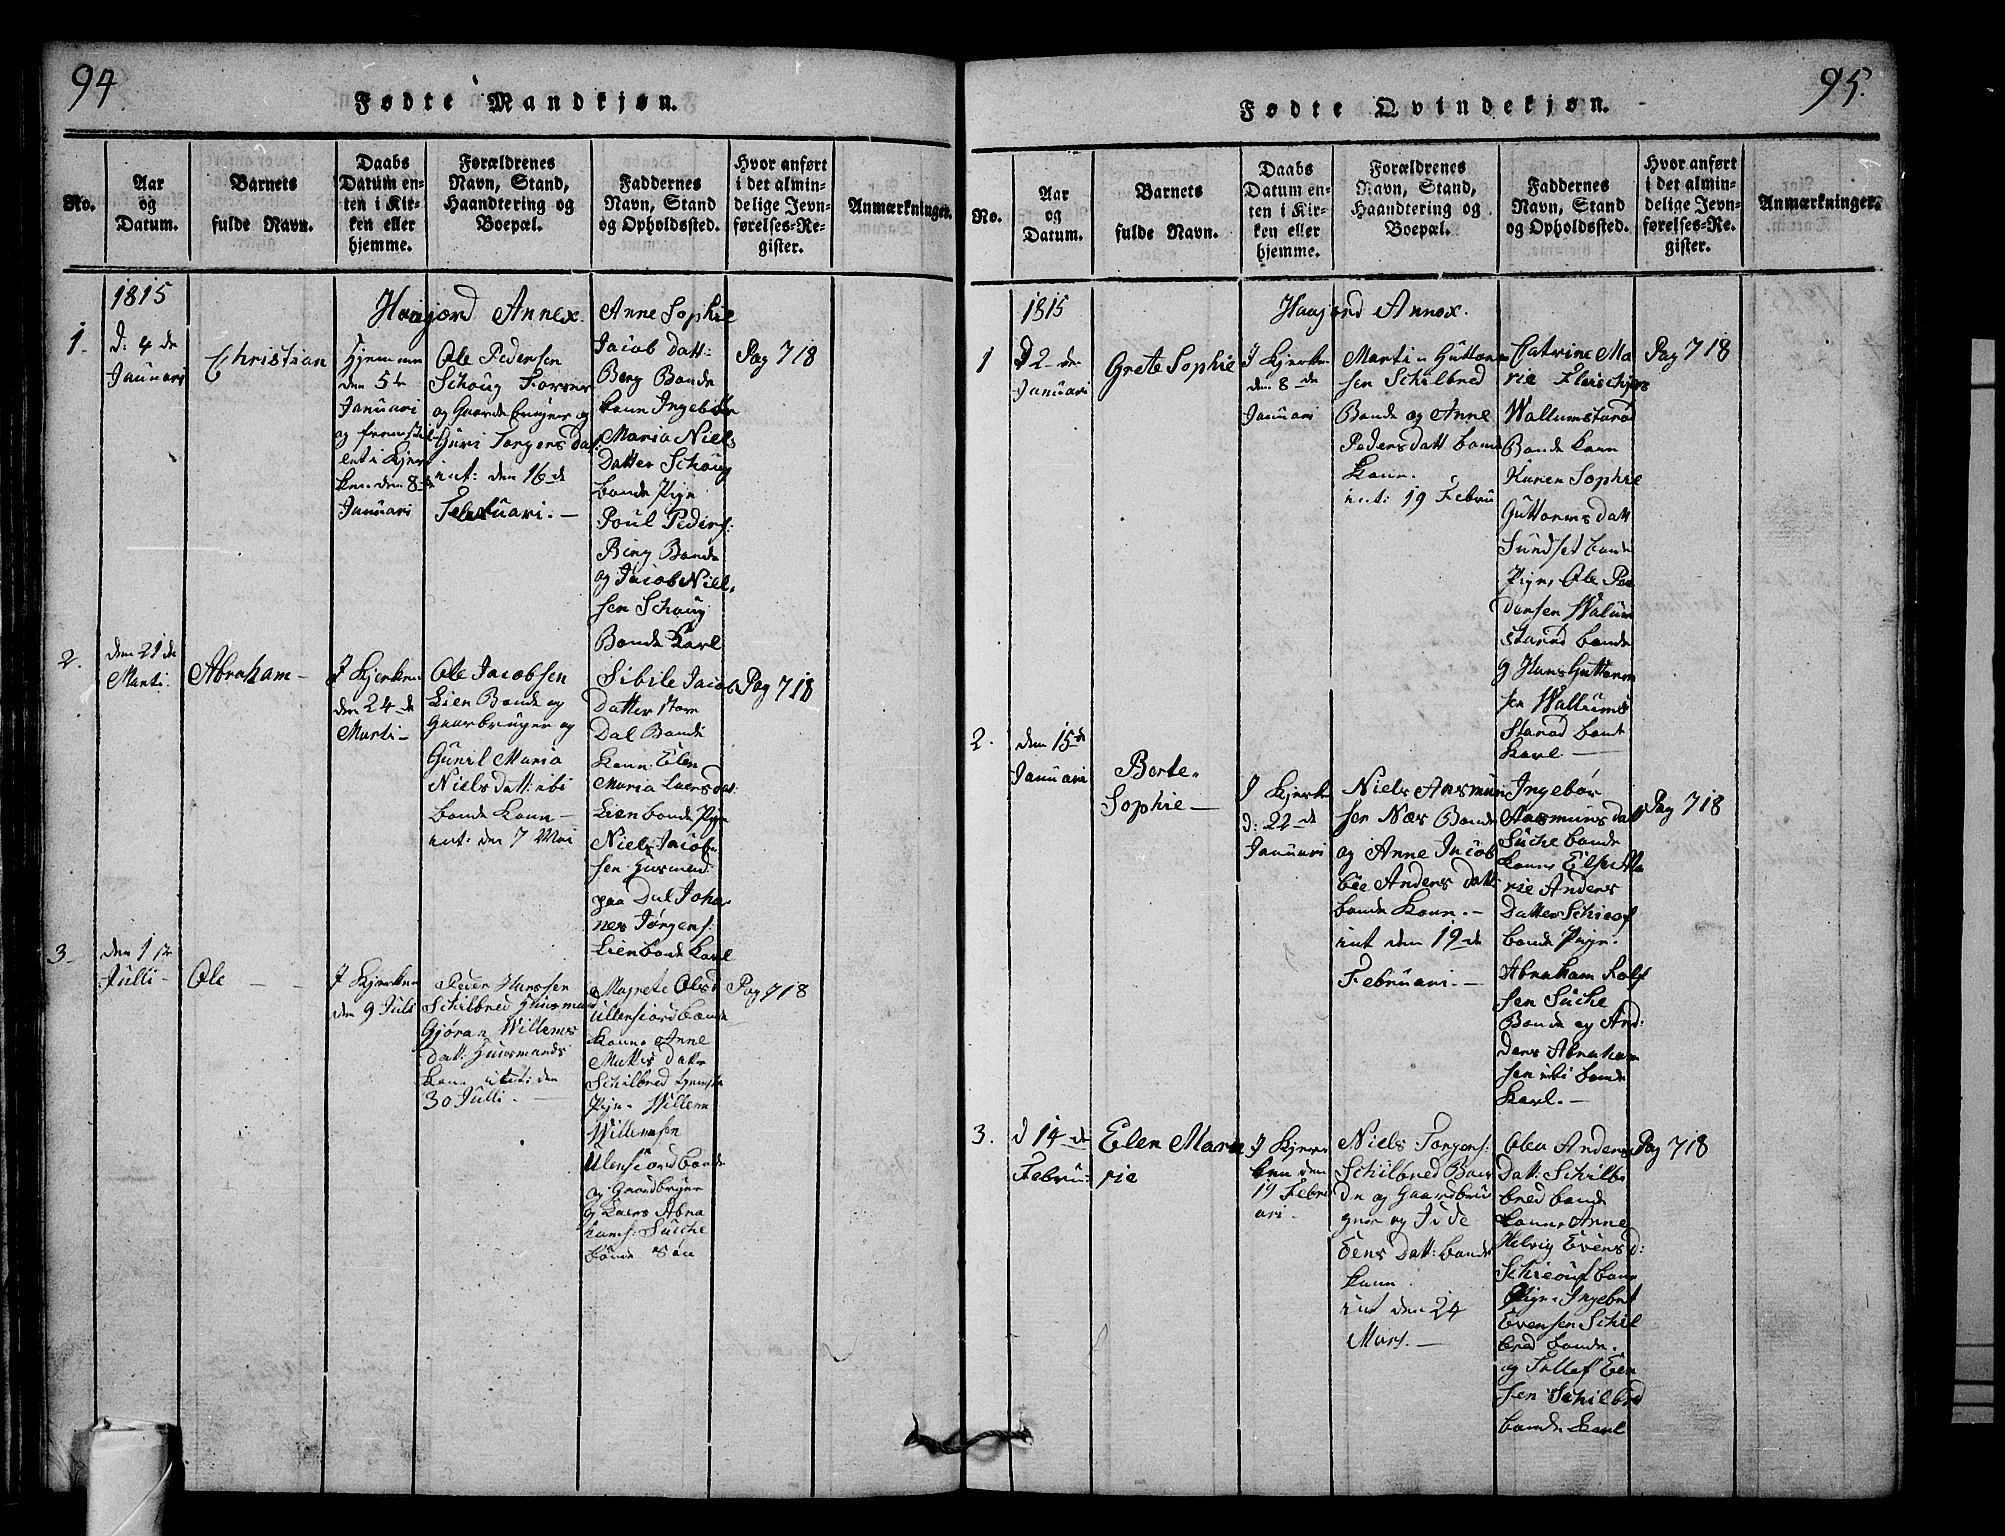 94
Fødte Mandkjøn.
No.
Aar
og
Datum.
Barnets
fulde Navn.
Daabs
Datum en-
ten i Kir-
ken eller
hjemme.
Forældrenes
Navn, Stand,
Haandtering og
Boepæl.
Faddernes
Navn, Stand
og Opholdssted.
Hvor anført
i det almin-
delige Jevn-
førelses-Re-
gister.
Anmærkninger.
1815
Haagjord Annex.
1.
d: 4 de
Januari
Christian
Hjemme
den 5te
Januari
og fremstil
let i Kjer
ken den 8de
Januari
Ole Pedersen
Schoug Forser
og Gaardebruger og
Guri Torgers dat:
int: den 16 de
Februari. —
Anne Sophie
Jacob Datt:
Berg Bonde
kone Ingebor
Maria Niels
Datter Schoug
bonde Pige
Poul Peders:
Berg Bonde
og Jacob Niel
sen Schoug
Bonde Karl
Pag 718
2.
den 21 de
Marti.
Abraham —
I Kjerken
den 24 de
Marti —
Ole Jacobsen
Lien Bonde og
Gaarbruger og
Gunil Maria
Niels datt: ibi
bonde Kone —
int: den 7 Mai
Sibile Jacob
Datter Store
Dal Bonde
kone: Elen
Maria Laersdat
Lien bonde Pige
Niels Jacob
sen Husmand
paa Dal Joha
nes Jørgens:
Lien bonde Karl
Pag 718
3.
den 1 ste
Julli —
Ole
I Kjerken
den 9 Juli
Peder Hanssen
Schilbred Huusmand
Gjøran Willems
Datt: Huusmands
kone int: den
30 Julli. —
Magrete Olsd
Ullensiord bonde
kone Anne
Mattis Dattr
Schilbred tjeneste
Pige Willem
Willemsen
Ulensiord bonde
og Gaardbruger
og Laers Abra
hams: Suche
bonde Søn
Pag 718
95.
Fødte Qvindekjøn.
No.
Aar
og
Datum.
Barnets
fulde Navn.
Daabs
Datum en-
ten i Kir-
ken eller
hjemme.
Forældrenes
Navn, Stand,
Haandtering og
Boepæl.
Faddernes
Navn, Stand
og Opholdssted.
Hvor anført
i det almin-
delige Jevn-
førelses-Re-
gister.
Anmærkninger.
1815
Haagjord Annex.
1
d 2 den
Januari
Grete Sophie
I Kjerken
den 8 de
Januari
Martin Guttorm
sen Schilbred
Bonde og Anne
Peders datt bonde
kone.
int: 19 Febru
Catrine Ma
rie Fleischer
Wallumstarod
Bonde kone
Karen Sophie
Guttorms datt
Sundset bonde
Pige, Ole Pe
dersen Walum
starod bonde
g Hans Guttorm
sen Wallum
starod bond
karl —
Pag 718
2.
den 15de
Januari
Berte
Sophie —
I Kjerken
d: 22 de
Januari
Niels Aasmun
sen Næs Bonde
og Anne Jacob
bee Anders datt:
bonde kone. —
int den 19 de
Februari. —
Ingebor
Aasmuns datt
Suche bonde
kone Elses Ma
rie Anders
Datter Schieof
bonde Pige.
Abraham Rolf
sen Suche
Bonde og And:
ders Abraham
sen ibi bonde
Karl. —
Pag 718
3.
d 14 de
Febru
Elen Maria
rie
I Kjer
ken den
19 Febru
ari —
Niels Torgers:
Schilbred Bon
de og Gaardbru
ger og Inde
Eens Datt: bonde
kone
int den 24
Mars. —
Olea Anders
Dat: Schilb
bred bonde
kone Anne
Helvig Evens d:
Schieouf bonde
Pige Ingebret
Evensen Schil
bred bonde.
og Tollef Een
sen Schilbred
bonde Karl
Pag 718